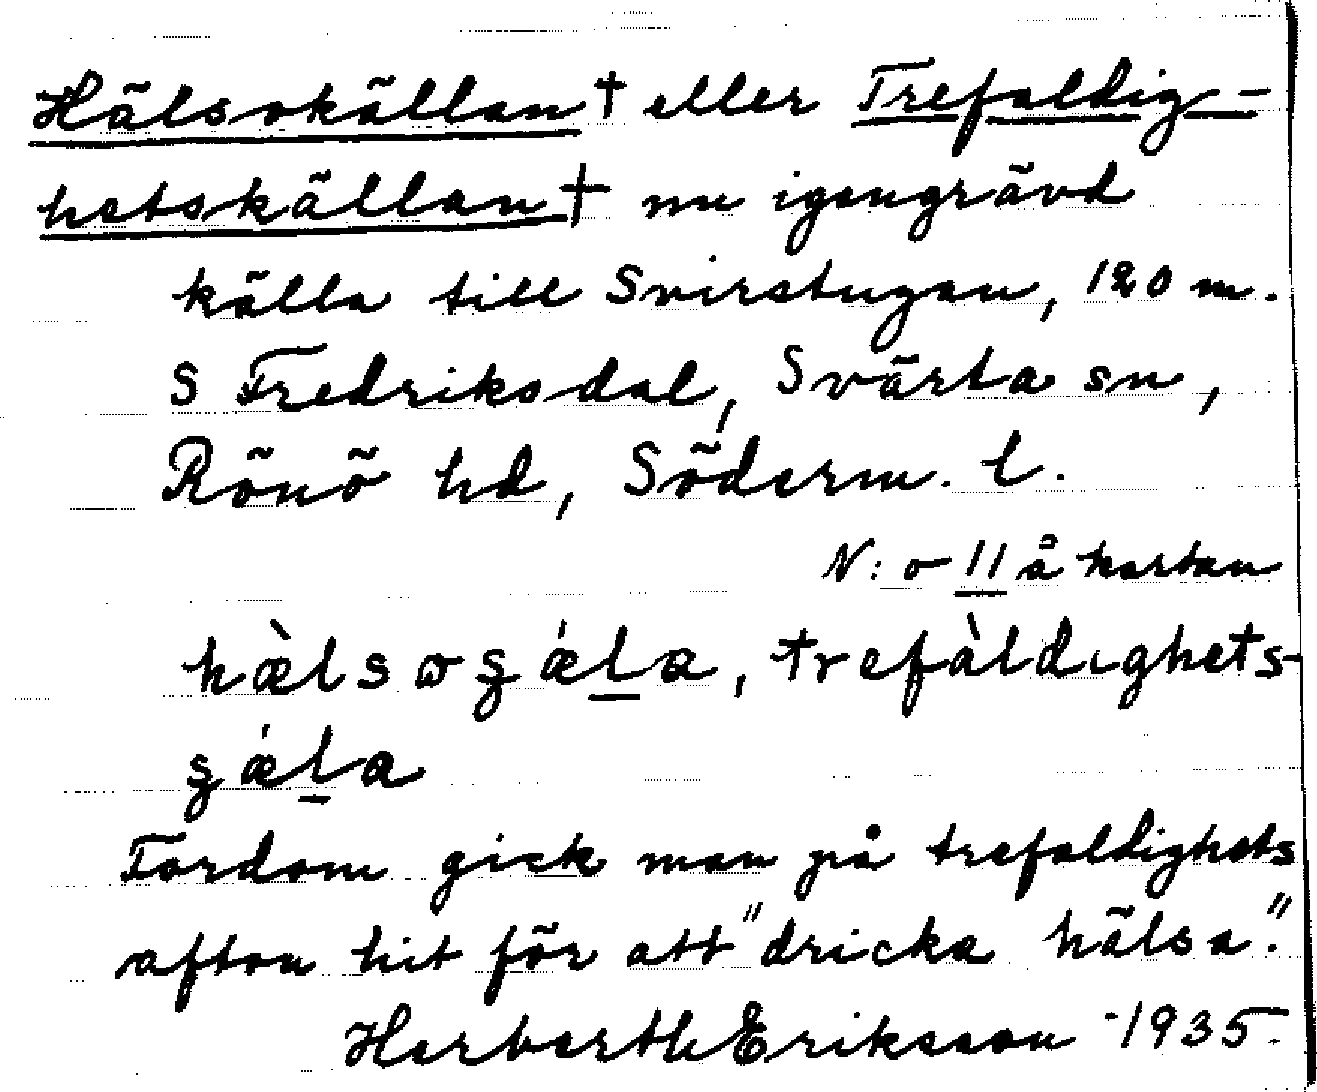 Hälsokällan† eller Trefaldig-
hetskällan† nu igengrävd
källa till Svirstugan, 120 m.
S Fredriksdal, Svärta sn,
Rönö hd, Söderm. l.
N:o 11 å kartan
hæ̀lsoʂǽl̲a, trefàldıghets-
ʂǽl̲a
Fordom gick man på trefaldighets
afton hit för att "dricka hälsa."
Herbert Eriksson -1935.